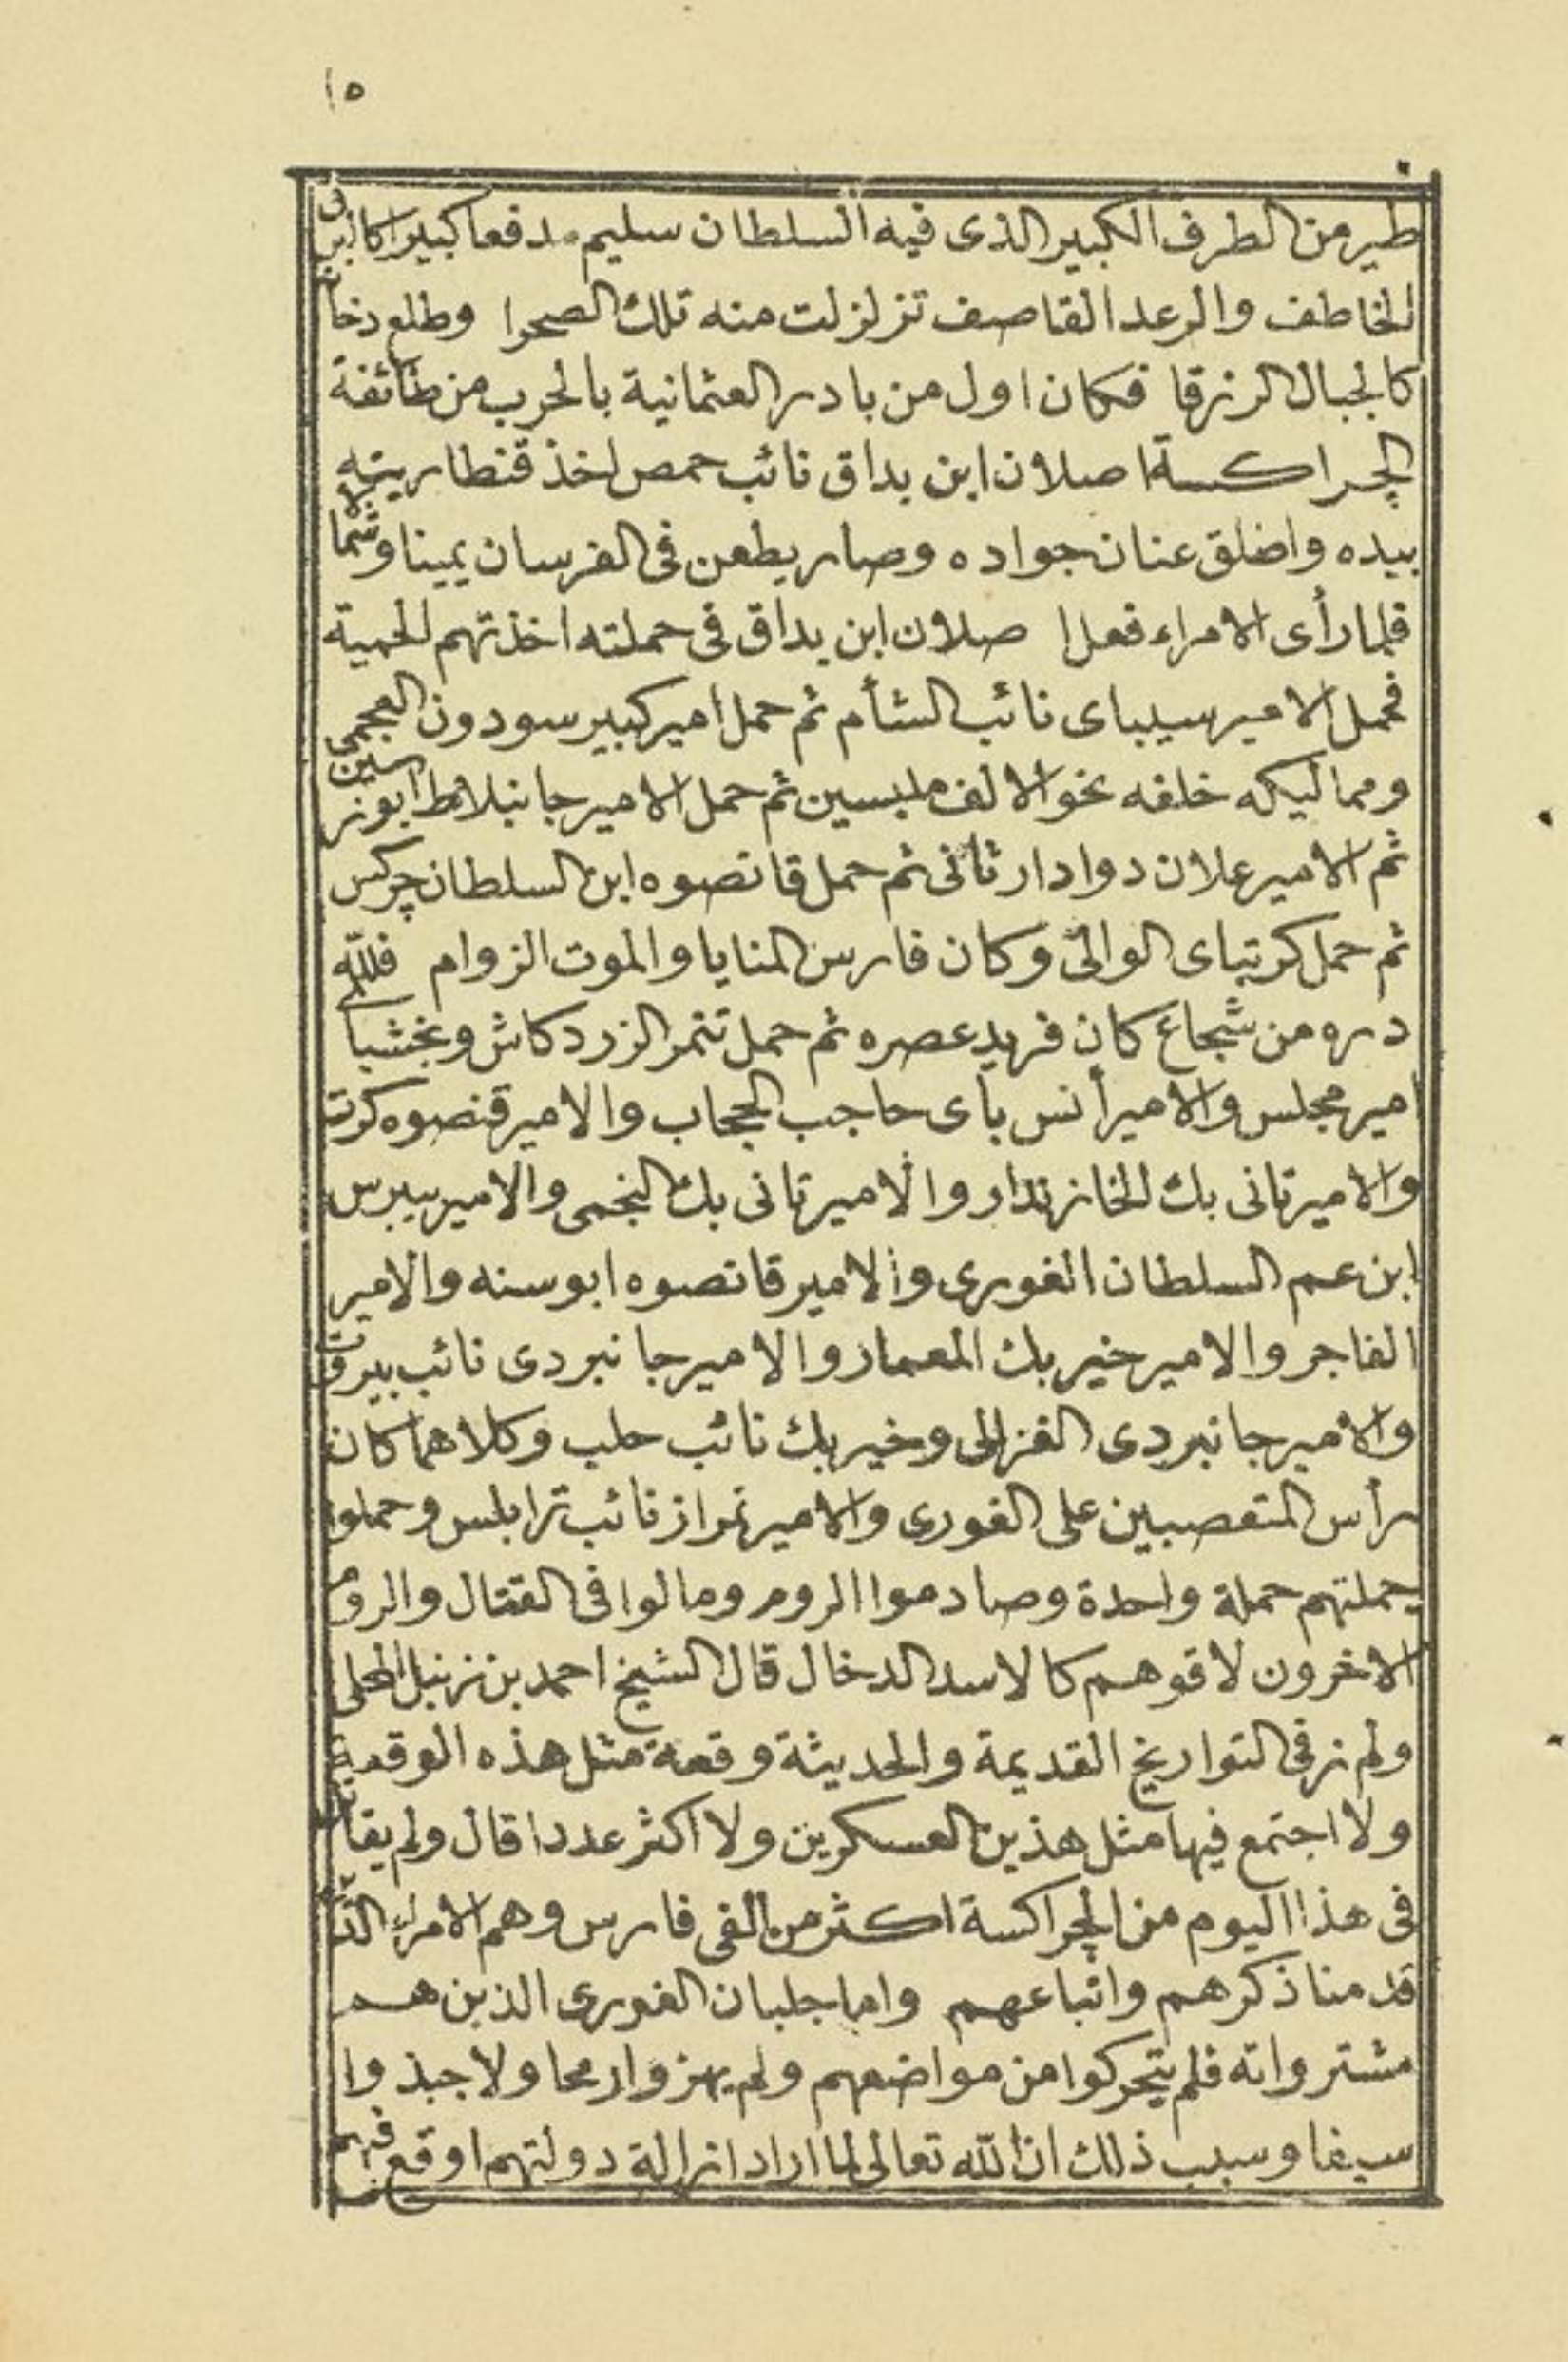 ١٥
طير من الطرف الكبير الذى فيه السلطان سليم مدفعا كبيرا كالبرق
الخاطف والرعد القاصف تزلزلت منه تلك الصحرا وطلع دخان
كالجبال الزرقا فكان اول من بادر العثمانية بالحرب من طائفة
الچراكسة اصلان ابن بداق نائب حمص اخذ قنطاريته
بيده واضلق عنان جواده وصار يطعن فى الفرسان يمينا وشمالا
فلما رأى الامراء فعل ا صلان ابن بداق فى حملته اخذتهم الحمية
فحمل الامير سيباى نائب الشأم ثم حمل امير كبير سودون العجمى
ومماليكه خلفه نحو الالف ملبسين ثم حمل الامير جانبلاط ابو ترسين
ثم الامير علان دوادار ثانى ثم حمل قانصوه ابن السلطان چركس
ثم حمل كرتباى الوالى وكان فارس المنايا والموت الزوام فلله
دره من شجاع كان فريد عصره ثم حمل تتمر الزردكاش وبخشباى
امير مجلس والامير أنس باى حاجب الحجاب والامير قنصوه كرت
والامير تانى بك الخازندار والامير تانى بك النجمى والامير بيبرس
ابن عم السلطان الغورى والامير قانصوه ابو سنه والامير
الفاجر والامير خير بك المعمار والامير جانبردى نائب بيروت
والامير جانبردى الغزالى وخير بك نائب حلب وكلاهما كان
رأس المتعصبين على الغورى والامير تمراز نائب ترابلس وحملوا
حملتهم حملة واحدة وصادموا الروم ومالوا فى القتال والروم
الاخرون لاقوهم كالاسد الدخال قال الشيخ احمد بن زنبل المحلى
ولم نر فى التواريخ القديمة والحديثة وقعة مثل هذه الوقعة
ولا اجتمع فيها مثل هذين العسكرين ولا اكثر عددا قال ولم يقاتل
فى هذا اليوم من الچراكسة اكثر من الفى فارس وهم الامراء الذين
قدمنا ذكرهم واتباعهم واما جلبان الغورى الذين هم
مشترواته فلم يتحركوا من مواضعهم ولم يهزوا رمحا ولا جبذوا
سيفا وسبب ذلك ان الله تعالى لما اراد ازالة دولتهم اوقع فيهم